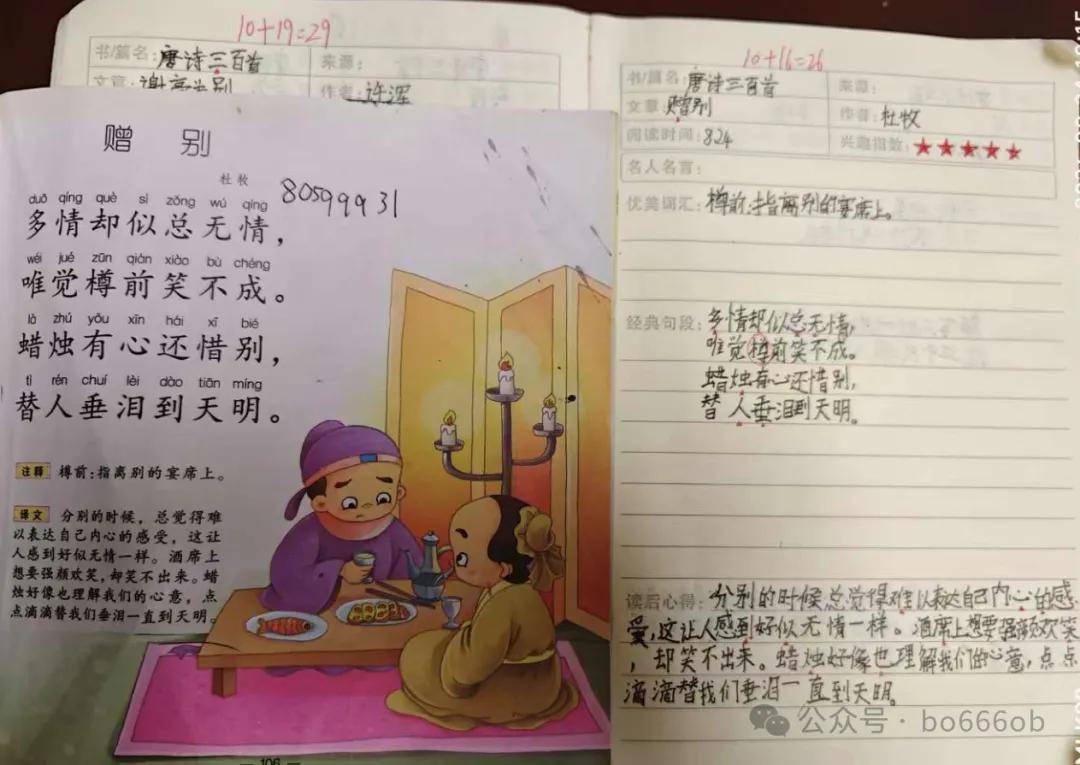 10+19=29
书/篇名: 唐诗三百首 来源:
文章: 谢亭送别 作者: 许浑
赠 别
杜牧
80599931
duō qíng què sì zǒng wú qíng
多情却似总无情，
wéi jué zūn qián xiào bù chéng
唯觉樽前笑不成。
là zhú yǒu xīn hái xī bié
蜡烛有心还惜别，
tì rén chuí lèi dào tiān míng
替人垂泪到天明。
注释 樽前:指离别的宴席上。
译文 分别的时候，总觉得难
以表达自己内心的感受，这让
人感到好似无情一样。酒席上
想要强颜欢笑，却笑不出来。蜡
烛好像也理解我们的心意，点
点滴滴替我们垂泪一直到天明。
106
10+16=26
书/篇名: 唐诗三百首 来源:
文章: 赠别 作者: 杜牧
阅读时间: 824 兴趣指数: ★★★★★
名人名言:
优美词汇: 樽前:指离别的宴席上。
经典句段: 多情却似总无情,
唯觉樽前笑不成。
蜡烛有心还惜别,
替人垂泪到天明。
读后心得: 分别的时候总觉得难以表达自己内心的感
受,这让人感到好似无情一样。酒席上想要强颜欢笑
,却笑不出来。蜡烛好像也理解我们的心意,点点
滴滴替我们垂泪一直到天明。
公众号 · bo666ob